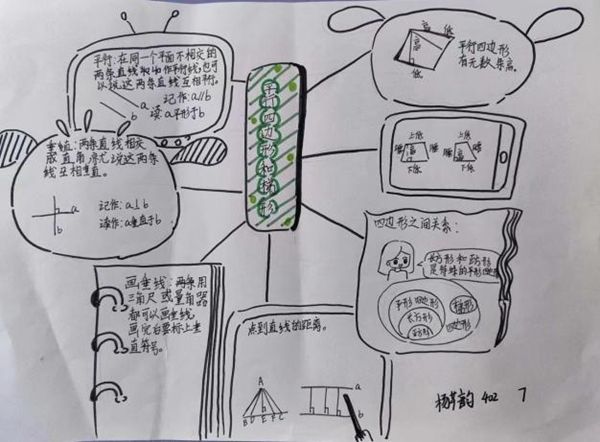 平行四边形和梯形
平行:在同一个平面不相交的
两条直线叫做平行线,也可
以说这两条直线互相平行。
a
b
记作:a∥b
读:a平行于b
垂直:两条直线相交
成直角,就说这两条
线互相垂直。
a
b
记作:a⊥b
读作:a垂直于b
画垂线:两条用
三角尺或量角器
都可以画垂线,
画完后要标上垂
直符号。
点到直线的距离。
A
B D E F C
a
b
高
底
高
底
平行四边形
有无数条高。
上底
腰
高
下底
上底
腰
高
腰
下底
四边形之间关系:
长方形和正方形
是特殊的平行四边形
平行四边形
长方形
正方形
梯形
四边形
402
7